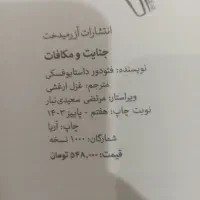 انتشارات آزرمیدخت
جنایت و مکافات
نویسنده: فئودور داستایوفسکی
مترجم: غزل ارغشی
ویراستار: مرتضی سعیدی‌تبار
نوبت چاپ: هفتم - پاییز ۱۴۰۳
چاپ: آریا
شمارگان: ۱۰۰۰ نسخه
قیمت: ۵۴۸,۰۰۰ تومان